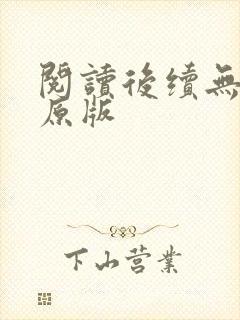 閱讀後續無
原版
下山营業